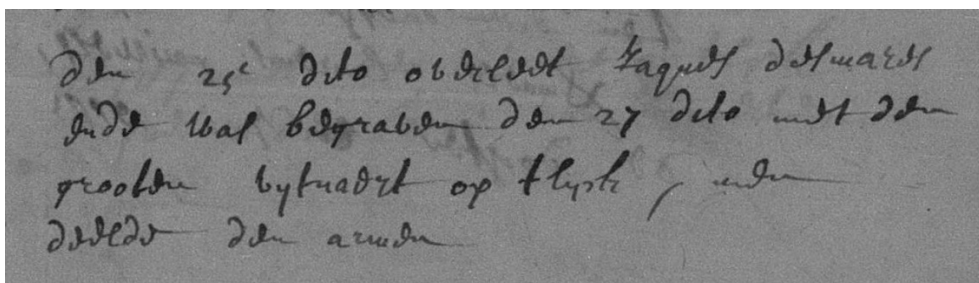 den 25e dito overleet Jaques desmares
ende was begraven den 27 dito met den
grooten uytvaert op t lyck, men
deelde den armen